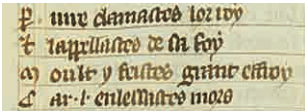 P. nire clamastes lor roy
t lappellastes de sa foy
M oult y feistes grant effroy
C ar .i. enlessastes mors